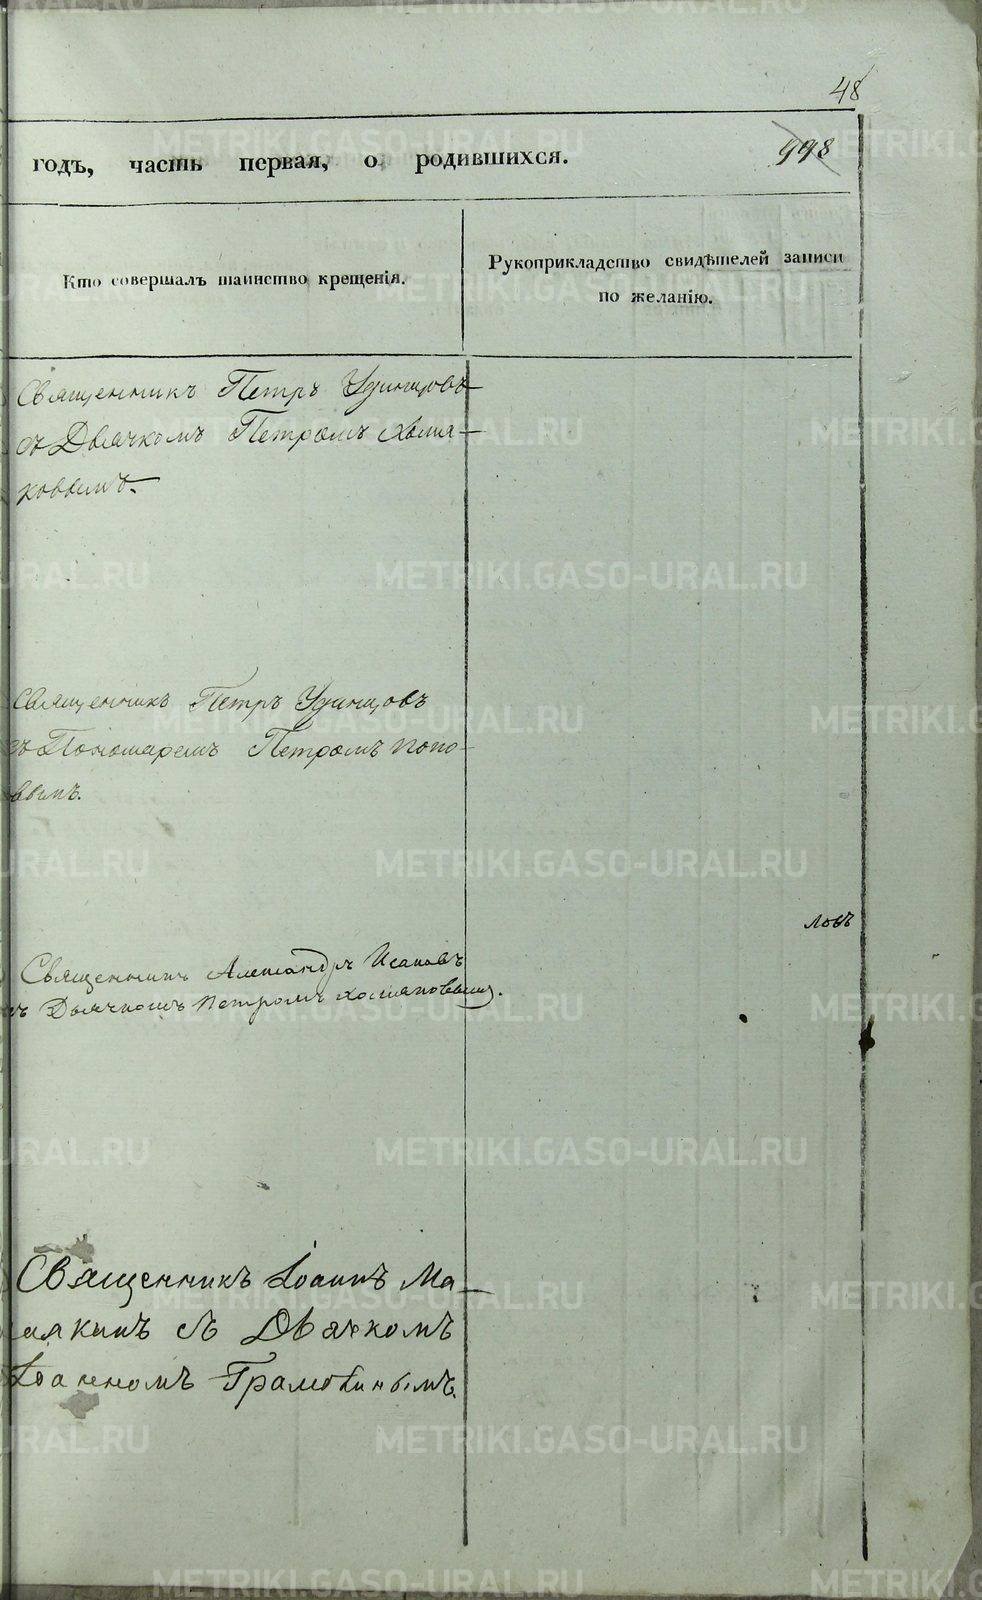 48
годъ, часть первая, о родившихся. 998
Кто совершалъ таинство крещенія.
Рукоприкладство свидѣтелей записи
по желанію.
Священникъ Петръ Удинцовъ
съ Дьячкомъ Петромъ Хомя-
ковымъ.
Священникъ Петръ Удинцовъ
съ Пономаремъ Петромъ Попо-
вымъ.
ловъ
Священникъ Александръ Исаковъ
съ Дьячкомъ Петромъ Хомяковымъ.
Священникъ Іоаннъ Ма-
съ Дьячкомъ
Іоанномъ
METRIKI.GASO-URAL.RU